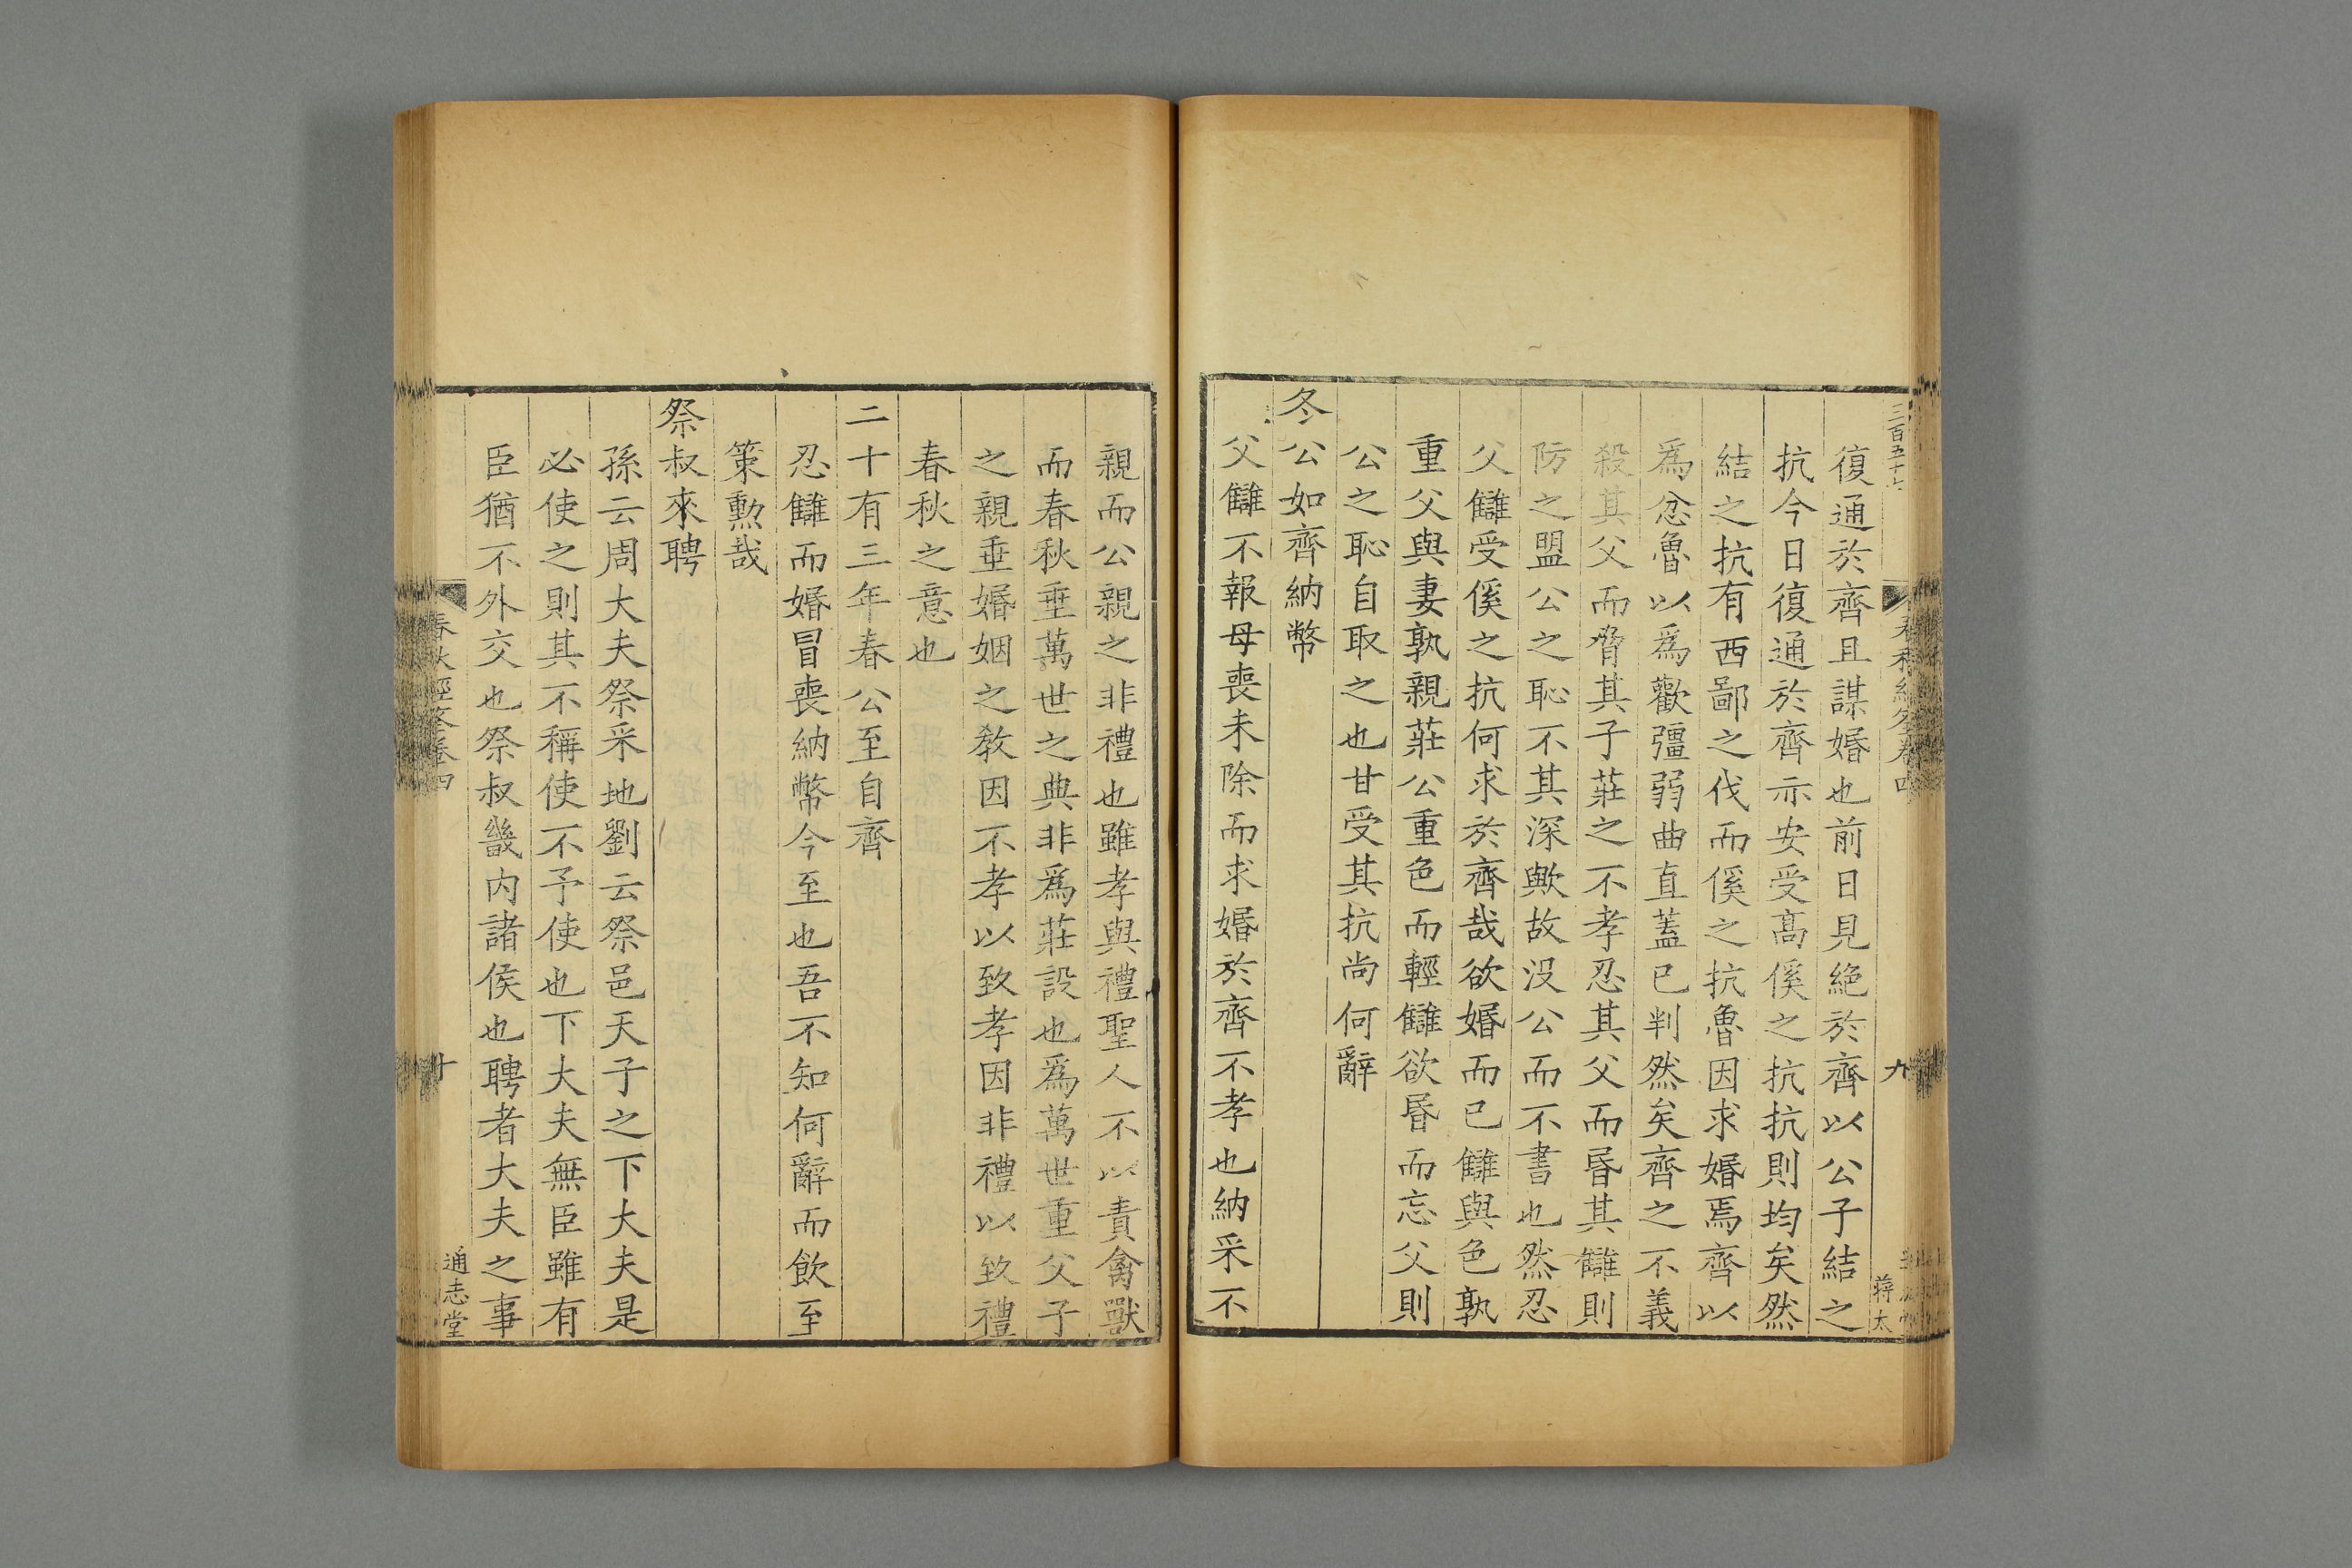 三百五十七
春秋經筌卷四
九
蔣太
復通於齊且謀婚也前日見絶於齊以公子結之
抗今日復通於齊示安受髙傒之抗抗則均矣然
結之抗有西鄙之伐而傒之抗魯因求婚焉齊以
爲忿魯以爲歡彊弱曲直蓋已判然矣齊之不義
殺其父而脅其子莊之不孝忍其父而昬其讎則
防之盟公之恥不其深歟故沒公而不書也然忍
父讎受傒之抗何求於齊哉欲婚而已讎與色孰
重父與妻孰親莊公重色而輕讎欲昬而忘父則
公之恥自取之也甘受其抗尚何辭
冬公如齊納幣
父讎不報母喪未除而求婚於齊不孝也納采不
親而公親之非禮也雖孝與禮聖人不以責禽獸
而春秋垂萬世之典非爲莊設也爲萬世重父子
之親垂婚姻之敎因不孝以致孝因非禮以致禮
春秋之意也
二十有三年春公至自齊
忍讎而婚冒喪納幣今至也吾不知何辭而飲至
策勲哉
祭叔來聘
孫云周大夫祭采地劉云祭邑天子之下大夫是
必使之則其不稱使不予使也下大夫無臣雖有
臣猶不外交也祭叔畿内諸侯也聘者大夫之事
春秋經筌卷四
十
通志堂